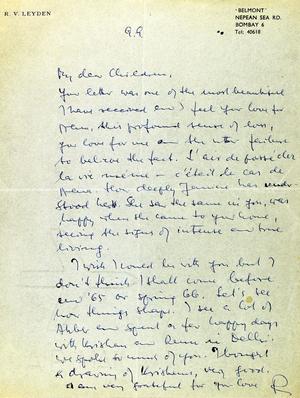 R. V. LEYDEN
"BELMONT"
NEPEAN SEA RD.
BOMBAY 6
Tel: 40618
My dear Children,
Your letter was one of the most beautiful
I have received and I feel your love for
Nena, this profound sense of loss,
your love for me and the utter failure
to believe the fact. L'air de
la vie même – c'était le cas de
Nena. How deeply has under-
stood her. She saw the same in you, was
happy when she came to your home,
seeing the signs of intense and true
living.
I wish I could be with you but I
don't think I shall come before
end '65 or spring 66. Let's see
how things shape. I see a lot of
Akbar and spent a few happy days
with Krishen and Renu in Delhi.
We spoke so much of you. I bought
a drawing of Krishens, very good.
I am very grateful for your love R